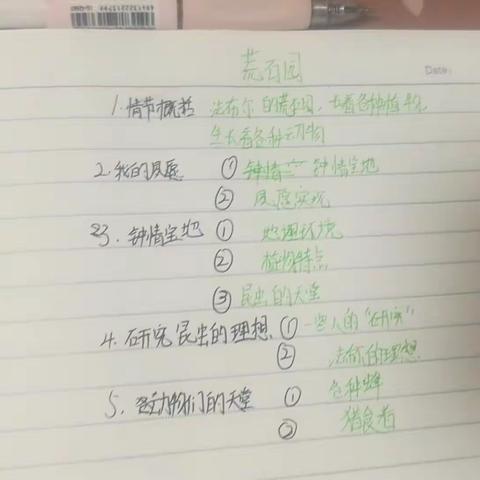 荒石园
Date:
1.情节概括 法布尔的荒石园,长着各种植物,
生长着各种动物
2.我的夙愿 ① 钟情一钟情宝地
② 夙愿实现
3.钟情宝地 ① 地理环境
② 植物特点
③ 昆虫的天堂
4.研究昆虫的理想 ① 一些人的“研究”
② 法布尔的理想
5.各动物们的天堂 ① 各种蜂
② 猎食者